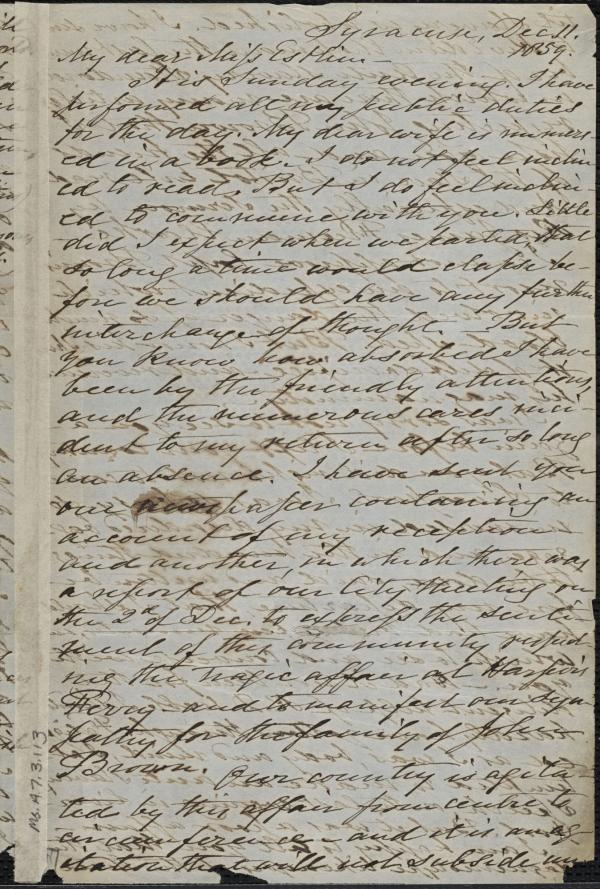 Syracuse, Dec. 11.
1859.
My dear Miss Esthin–
It is Sunday evening. I have
performed all my public duties
for the day. My dear wife is immers-
ed in a book. I do not feel inclin
ed to read. But I do feel inclin-
ed to commune with you. Little
did I expect when we parted, that
so long a time would elapse be-
fore we should have any further
interchange of thought. – But
you know how absorbed I have
been by the friendly attentions,
and the numerous cares inci-
dent to my return after so long
an absence. I have sent you
our newspaper containing an
account of my reception
and another, in which there was
a report of our City Meeting on
the 2d of Dec. to express the senti-
ment of this community respect
ing the tragic affair at Harper's
Ferry – and to manifest our sym
pathy for the family of John
Brown. Our country is agita-
ted by this affair from centre to
circumference – and it is an ag
itation that will not subside
Ms. A.7.3.113